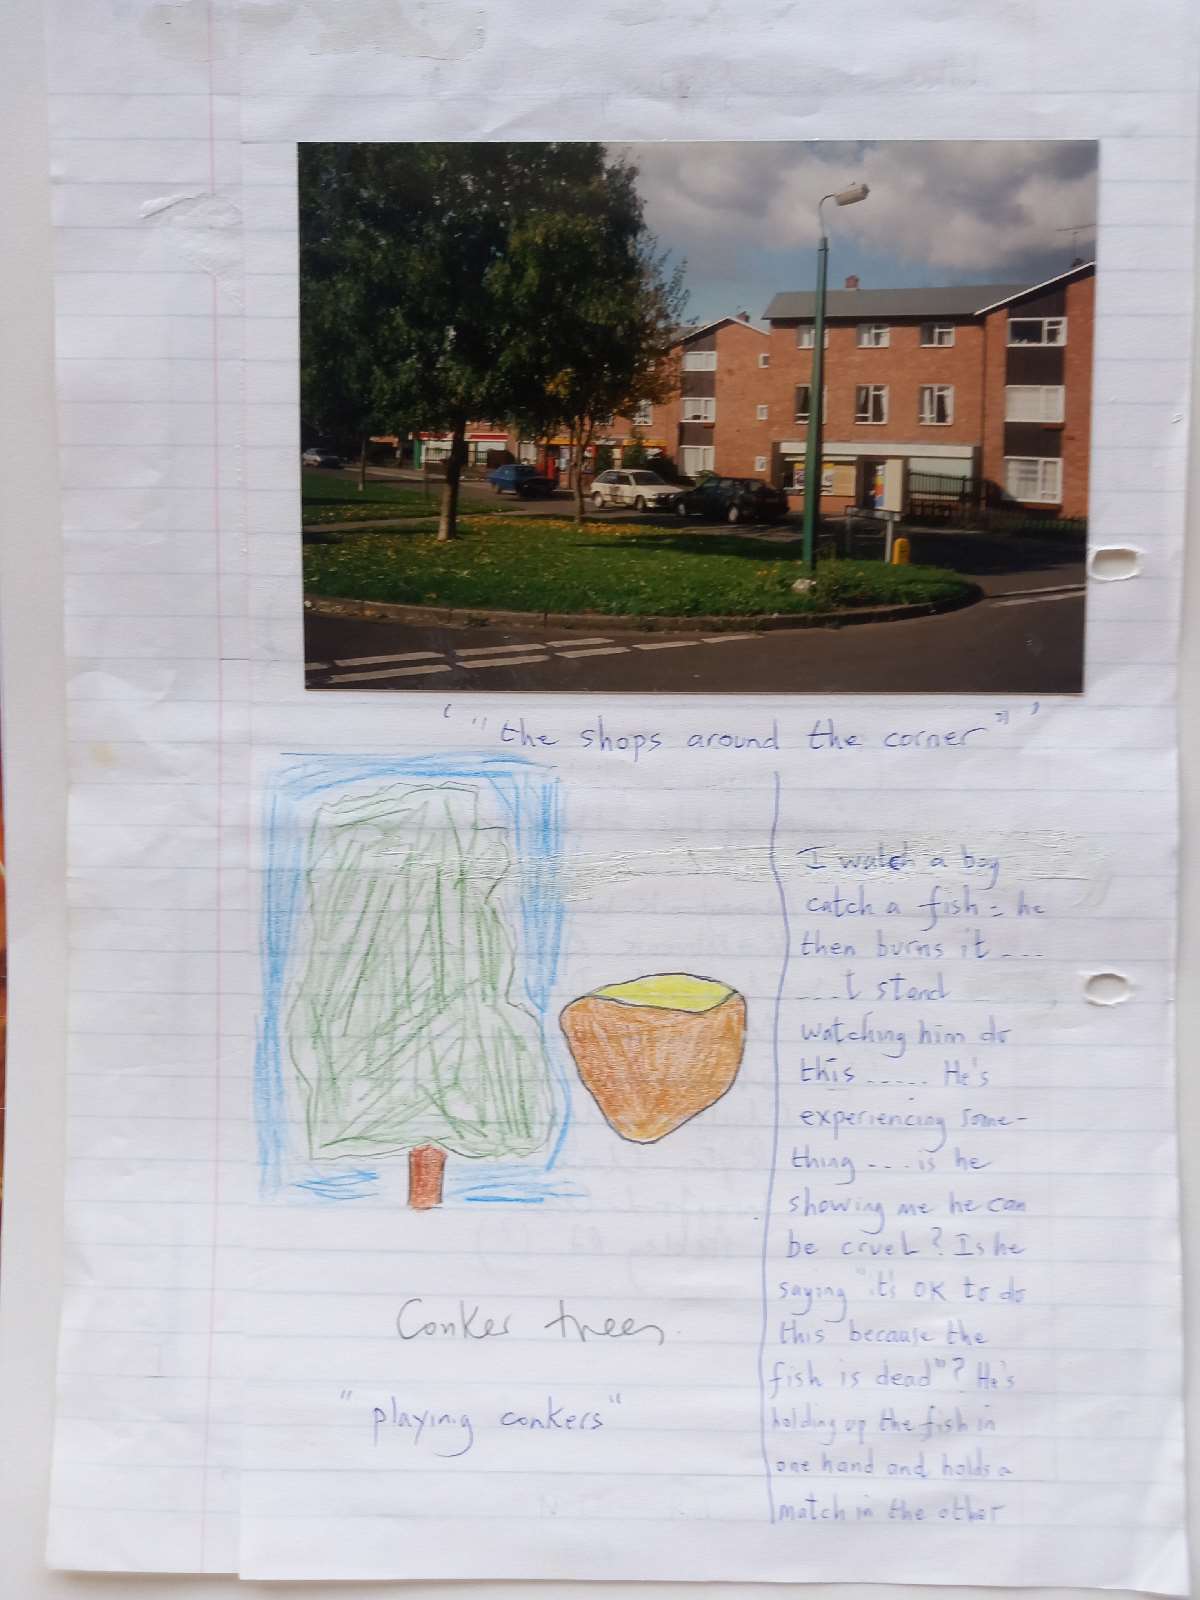 ' "the shops around the corner" '
I watch a boy
catch a fish = he
then burns it ---
---I stand
watching him do
this ----- He's
experiencing some-
thing --- is he
showing me he can
be cruel? Is he
saying "it's OK to do
this because the
fish is dead"? He's
holding up the fish in
one hand and holds a
match in the other
Conker trees.
"playing conkers"